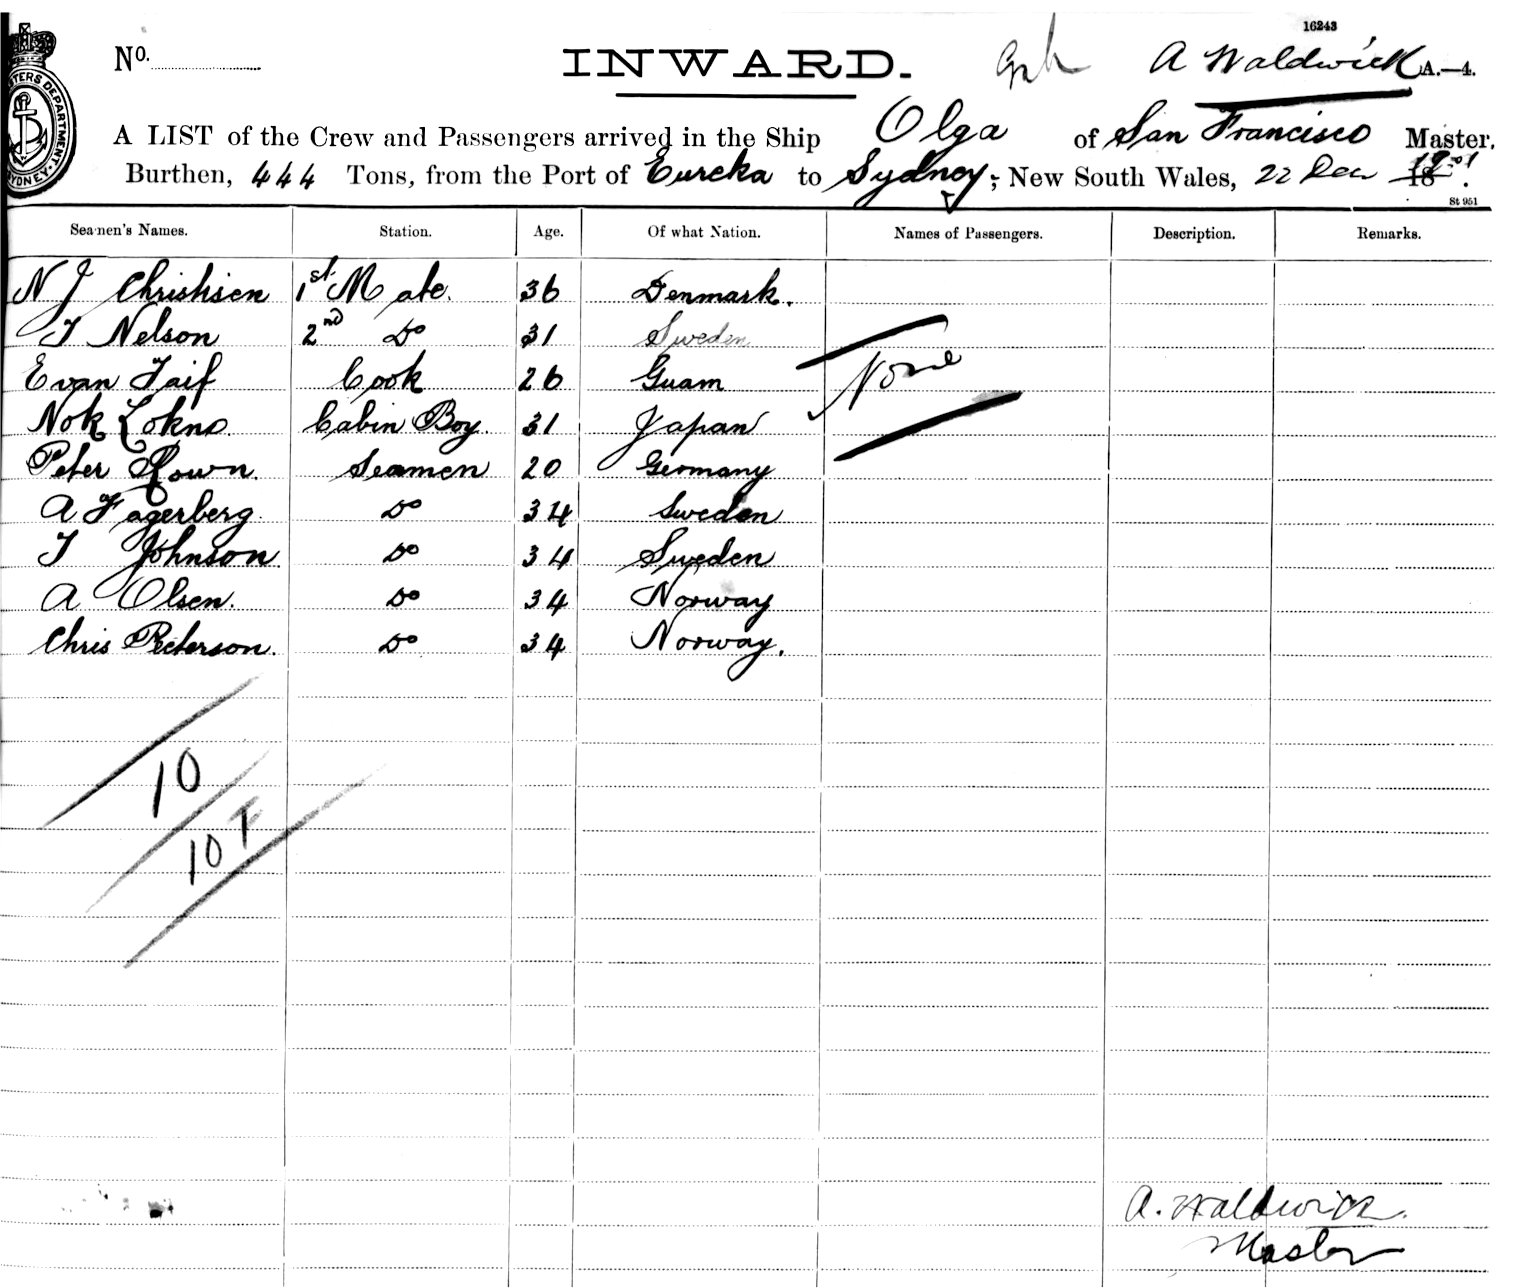 16243
No.
INWARD.
A Waldwick A.—4.
A LIST of the Crew and Passengers arrived in the Ship Olga of San Francisco Master,
Burthen, 444 Tons, from the Port of Eureka to Sydney, New South Wales, 22 Dec 1901.
St 951
Seamen's Names. Station. Age. Of what Nation. Names of Passengers. Description. Remarks.
N J Christisen 1st Mate. 36 Denmark.
T Nelson 2nd Do 31 Sweden
Evan Taif Cook 26 Guam None
Nok Lokno. Cabin Boy. 31 Japan
Peter Seamen 20 Germany
A Fagerberg. Do 34 Sweden
T Johnson Do 34 Sweden
A Olsen. Do 34 Norway
Chris Peterson. Do 34 Norway.
10
10 T
A. Waldwick.
Master